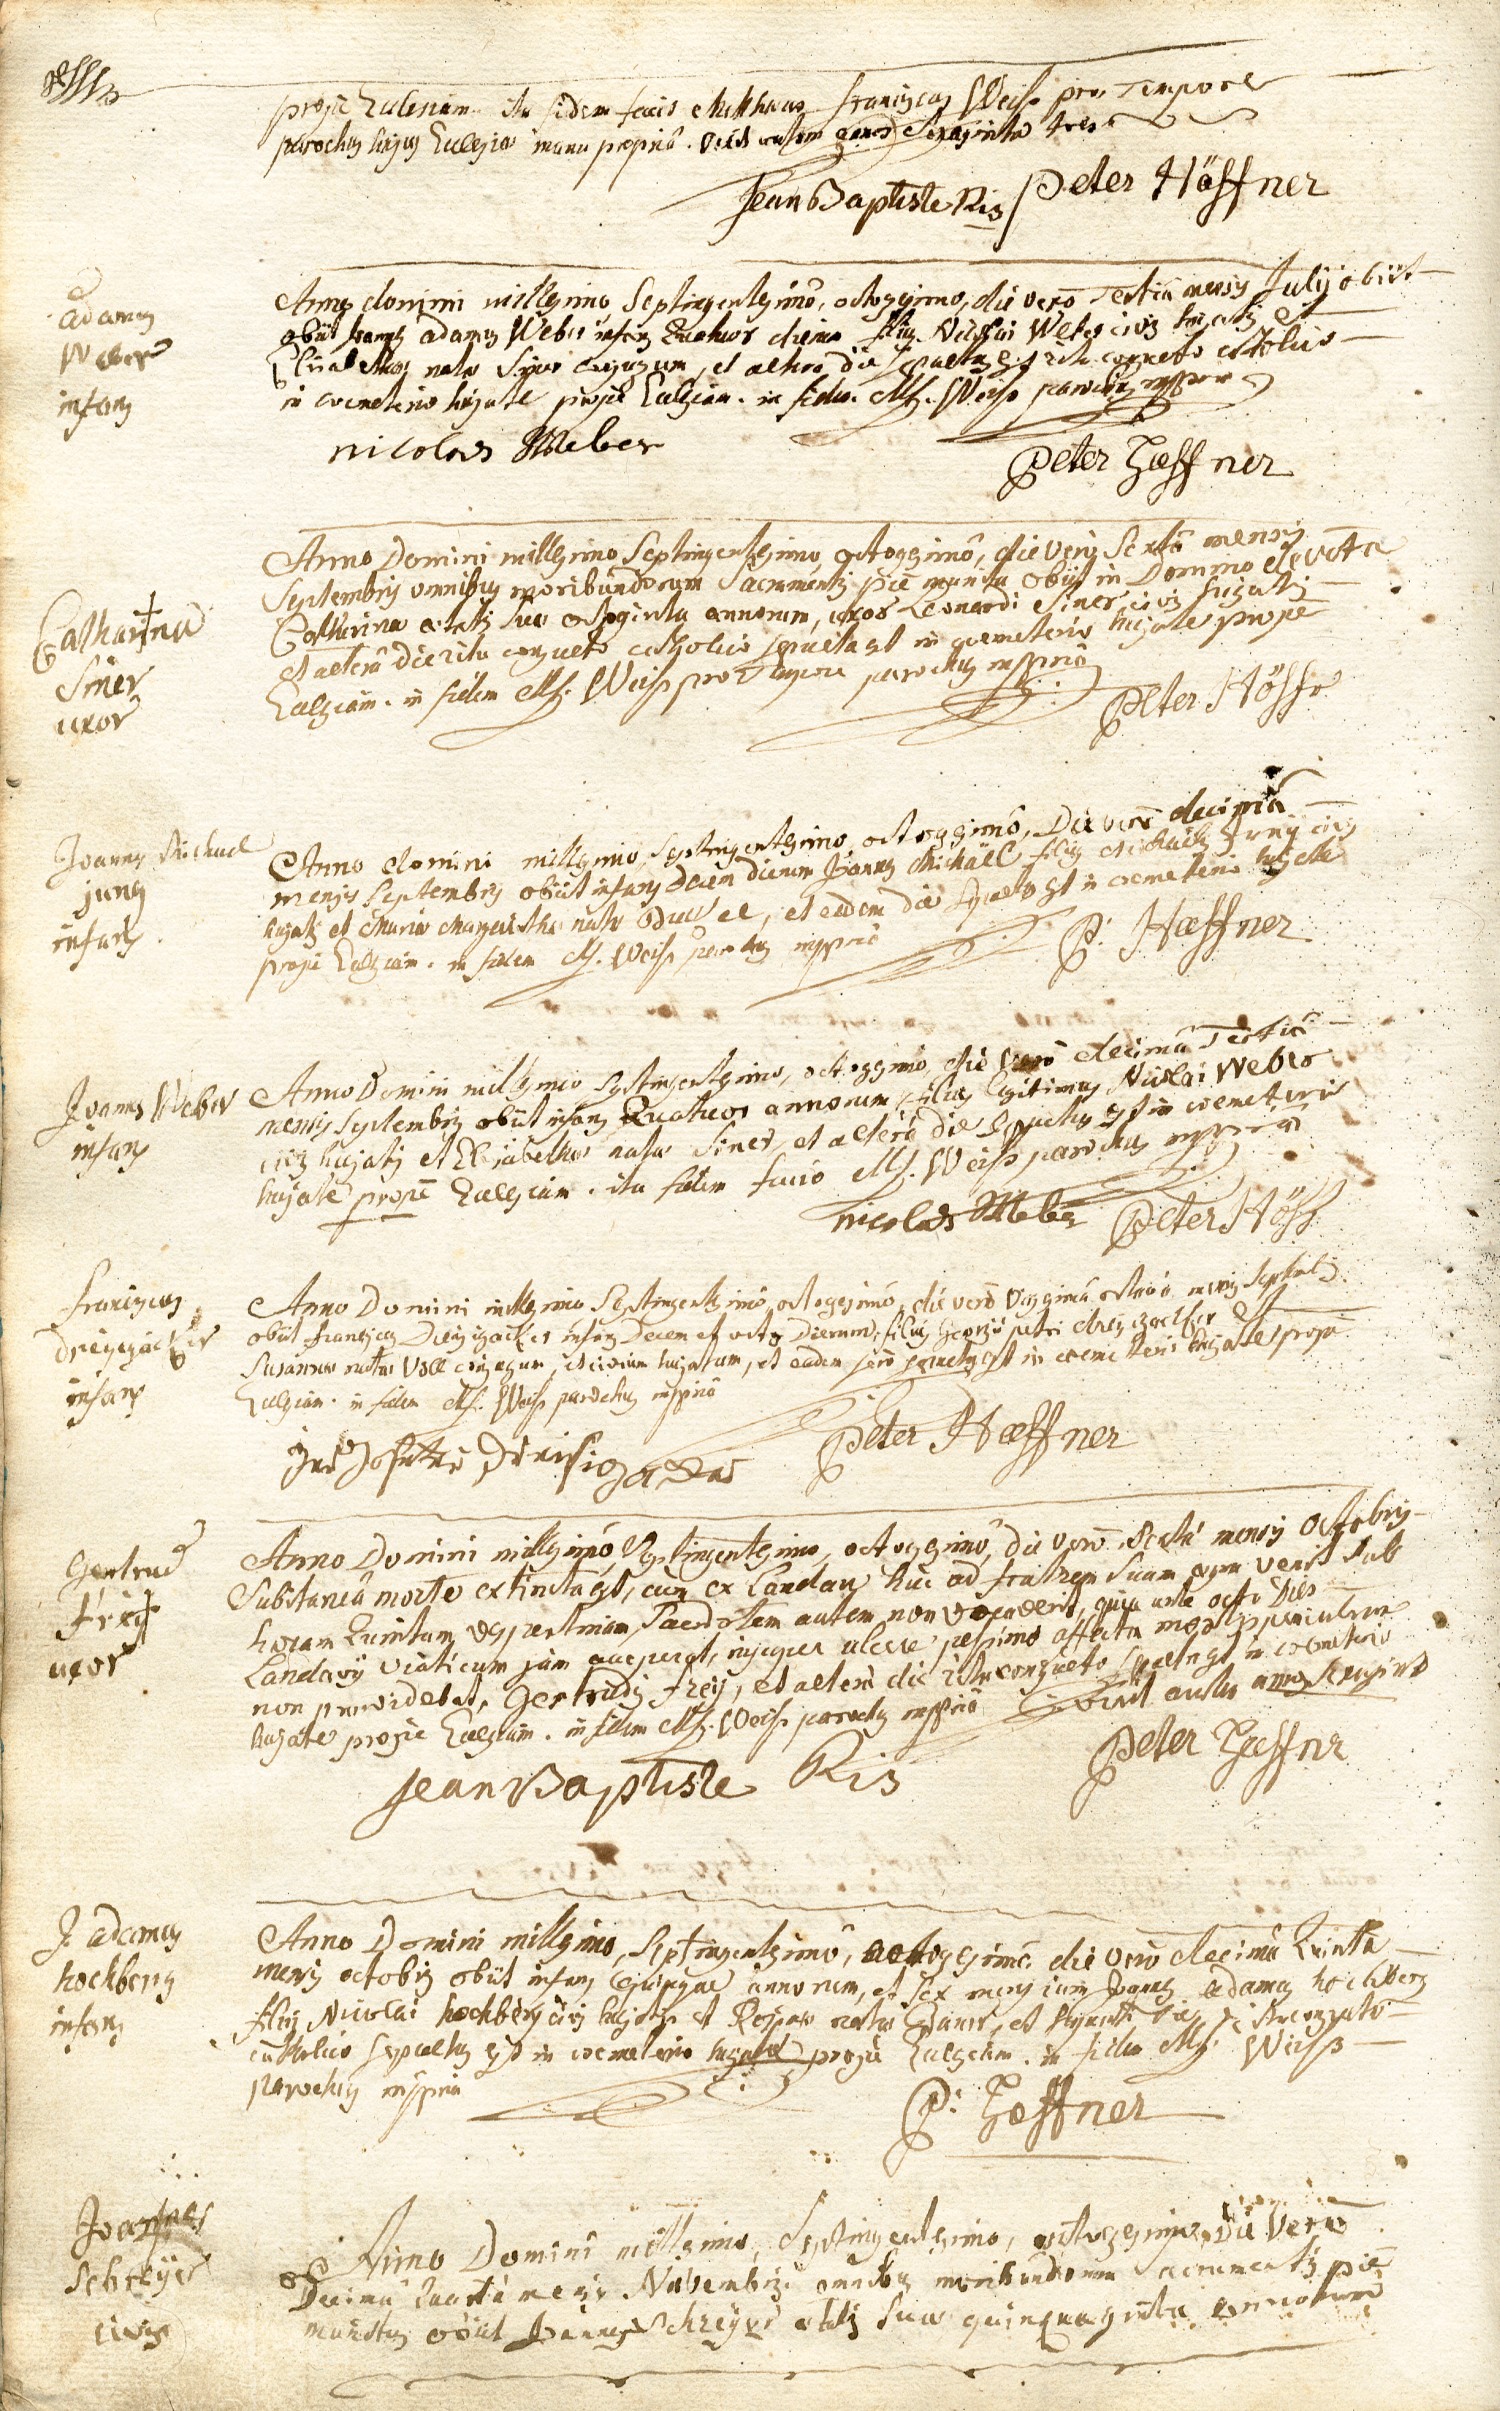 prope Ecclesiam. ita fidem facio Matthaeus Franciscus Weiss pro Tempore
parochus hujus Ecclesiae manu propriâ. vixit autem annos sexaginta tres
Jean Baptiste Ris Peter Höffner
adamus
Weber
infans
Anno domini millesimo Septingentesimô, octogesimo, die verô Tertiâ mensis Julij obiit
obiit Joannes adamus Weber infans Quatuor dierum filius Nicolai Weber civis hujatis et
Elisabethae nata Siner conjugum, et altera die sepultus est ritu consueto catolico
in coemeterio hujate prope Ecclesiam. in fidem Mf. Weiss parochus mppria
nicolas Weber
Peter Haeffner
Catharina
Siner
uxor
Anno Domini millesimo Septingentesimo, octogesimô, die verô Sextâ mensis
Septembris omnibus moribundorum Sacramentis piè munita obiit in Domino devota
Catharina aetatis suae octoginta annorum, uxor Leonardi Siner civis hujatis
et alterâ die ritu consueto catholico sepulta est in coemeterio hujate prope
Ecclesiam. in fidem Mf. Weiss pro Tempore parochus mppriâ
Peter Höffr
Joannes Michael
jung
infans.
Anno domini millesimo, septingentesimo, octogesimô, Die verò decimâ
mensis septembris obiit infans decem dierum Joannes Michäel filius Michaelis Jung civis
hujatis et Maria Margaretha nata, et eadem die sepultus est in coemeterio hujate
prope Ecclesiam. in fidem Mf. Weiss parochus mppriâ
P: Haeffner
Joannes Weber
infans
Anno Domini millesimo septingentesimo, octogesimo, die verò decimâ Tertiâ
mensis septembris obiit infans Quatuor annorum, filius legitimus Nicolai Weber
civis hujatis et Elisabethae nata Siner, et alterâ die sepultus est in coemeterio
hujate prope Ecclesiam. ita fidem facio Mf. Weiss parochus mppria
nicolas Weber Peter Höff
Franciscus
dreisigacker
infans
Anno Domini millesimo Septingentesimô, octogesimô, die verò vigesimâ octavâ mensis Septembris
obiit franciscus Dreisigacker infans Decem et octo Dierum, filius Georgii petri dreisigacker et
Susannae nata Voll conjugum, et civium hujatum, et eadem serò sepultus est in coemeterio hujate prope
Ecclesiam. in fidem Mf. Weiss parochus mppriâ
Peter Haeffner
Gertrud
Freij
uxor
Anno Domini millesimô, Septingentesimo, octogesimô, die verò Sextâ mensis octobris
Subitaneâ morte extincta est, cum ex Landau huc ad fratrem suum venit sub
horam Quintam vespertinam, Sacerdotem autem non vocaverit, quia ante octo Dies
Landavij viaticum jam acceperat, insuper ulcere pessimo affecta mortis periculum
non praevidebat, Gertrudis Freij, et alterâ die ritu consueto sepulta est in coemeterio
hujate prope Ecclesiam. in fidem Mf. Weiss parochus mppriâ vixit autem annos sexaginta
Jean Baptiste Ris
Peter Haeffner
J. adamus
hochberg
infans
Anno Domini millesimo, septingentesimô, octogesimô die verò decimâ Quintâ
mensis octobris obiit infans annorum, et sex mensium Joannes adamus hochberg
filius Nicolai hochberg civis hujatis et, et sequenti die ritu consueto
catholico sepultus est in coemeterio hujate prope Ecclesiam. in fidem Mf. Weiss
Parochus mppriâ
P: Haeffner
Joannes
Schreijer
civis
Anno Domini millesimo, Septingentesimo, octogesimo, Die verò
Decimâ Quartâ mensis Novembris omnibus moribundorum sacramentis piè
munitus obiit Joannes Schreijer aetatis suae quinquaginta annorum